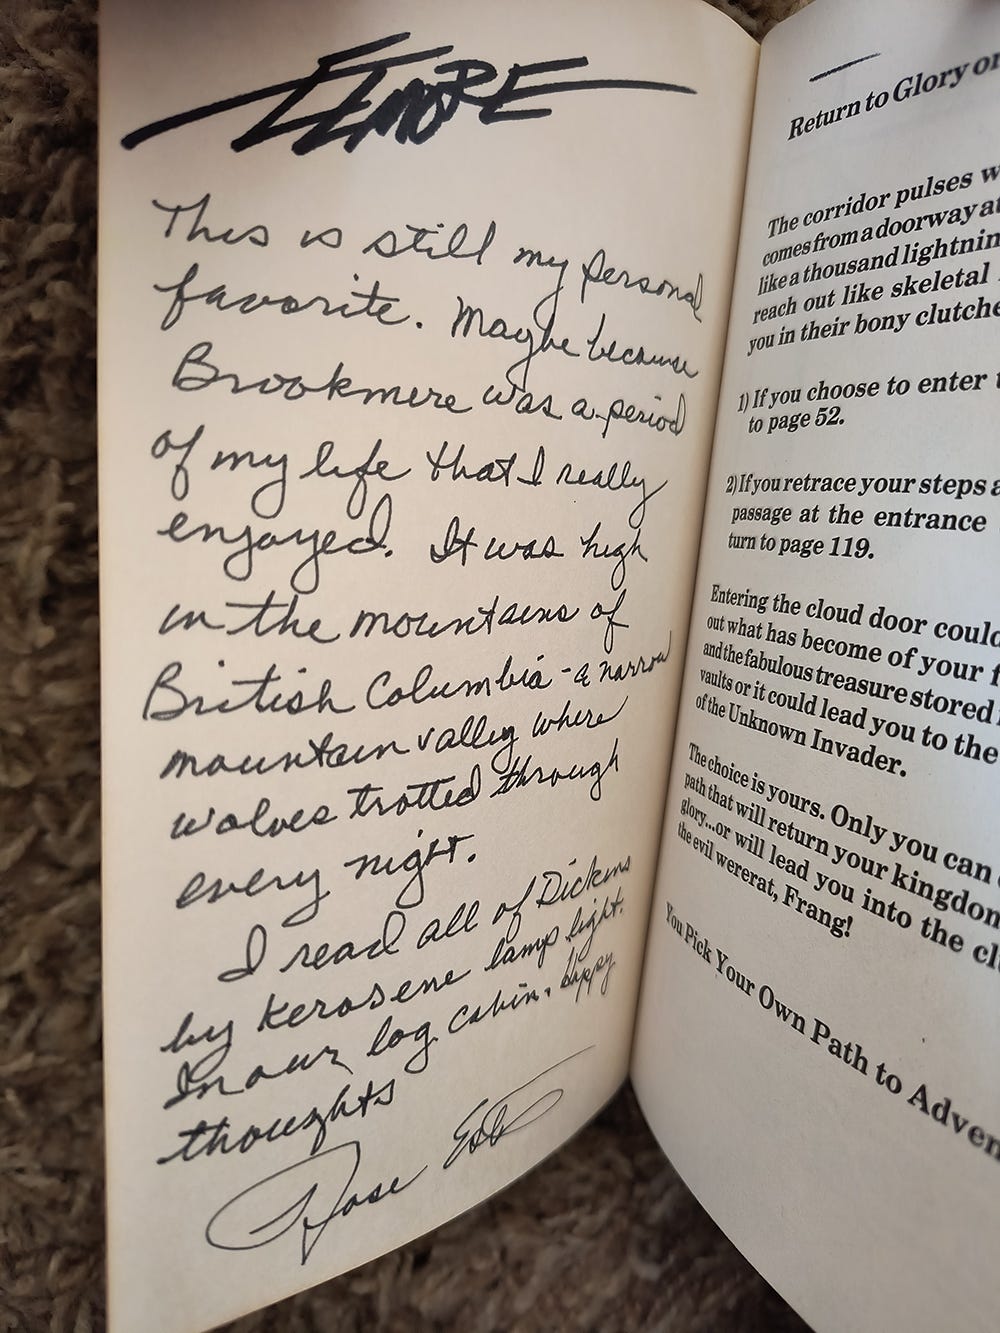 ELMORE
This is still my personal
favorite. Maybe because
Brookmere was a period
of my life that I really
enjoyed. It was high
in the mountains of
British Columbia - a narrow
mountain valley where
wolves trotted through
every night.
I read all of Dickens
by kerosene lamp light.
In our log cabin. Happy
thoughts
Rose Estes
Return to Glory or
The corridor pulses w
comes from a doorway at
like a thousand lightnin
reach out like skeletal
you in their bony clutche
1) If you choose to enter t
to page 52.
2) If you retrace your steps a
passage at the entrance
turn to page 119.
Entering the cloud door could
out what has become of your f
and the fabulous treasure stored
vaults or it could lead you to the
of the Unknown Invader.
The choice is yours. Only you can
path that will return your kingdom
glory...or will lead you into the cl
the evil wererat, Frang!
You Pick Your Own Path to Adven